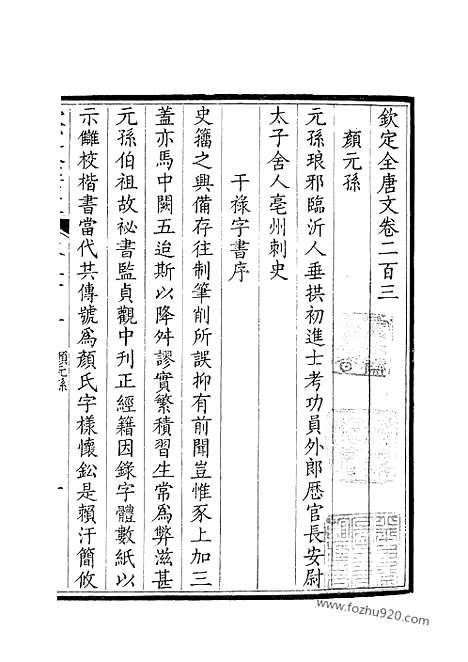 欽定全唐文卷二百三
顏元孫
元孫琅邪臨沂人垂拱初進士考功員外郎歷官長安尉
太子舍人亳州刺史
干祿字書序
史籀之興備存往制筆削所誤抑有前聞豈惟豕上加三
蓋亦馬中闕五迨斯以降舛謬實繁積習生常爲弊滋甚
元孫伯祖故祕書監貞觀中刊正經籍因錄字體數紙以
示讎校楷書當代共傳號爲顏氏字樣懷鉛是賴汗簡攸
顏元孫
一
www.fozhu920.com